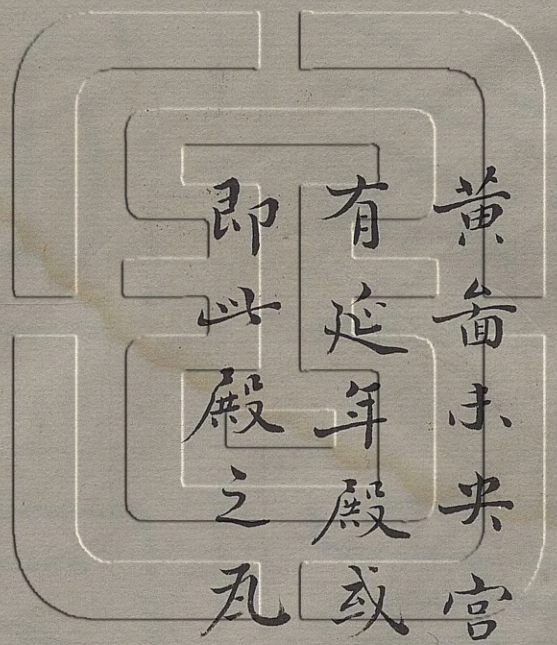 黄啚未央宫
有延年殿或
即此殿之瓦